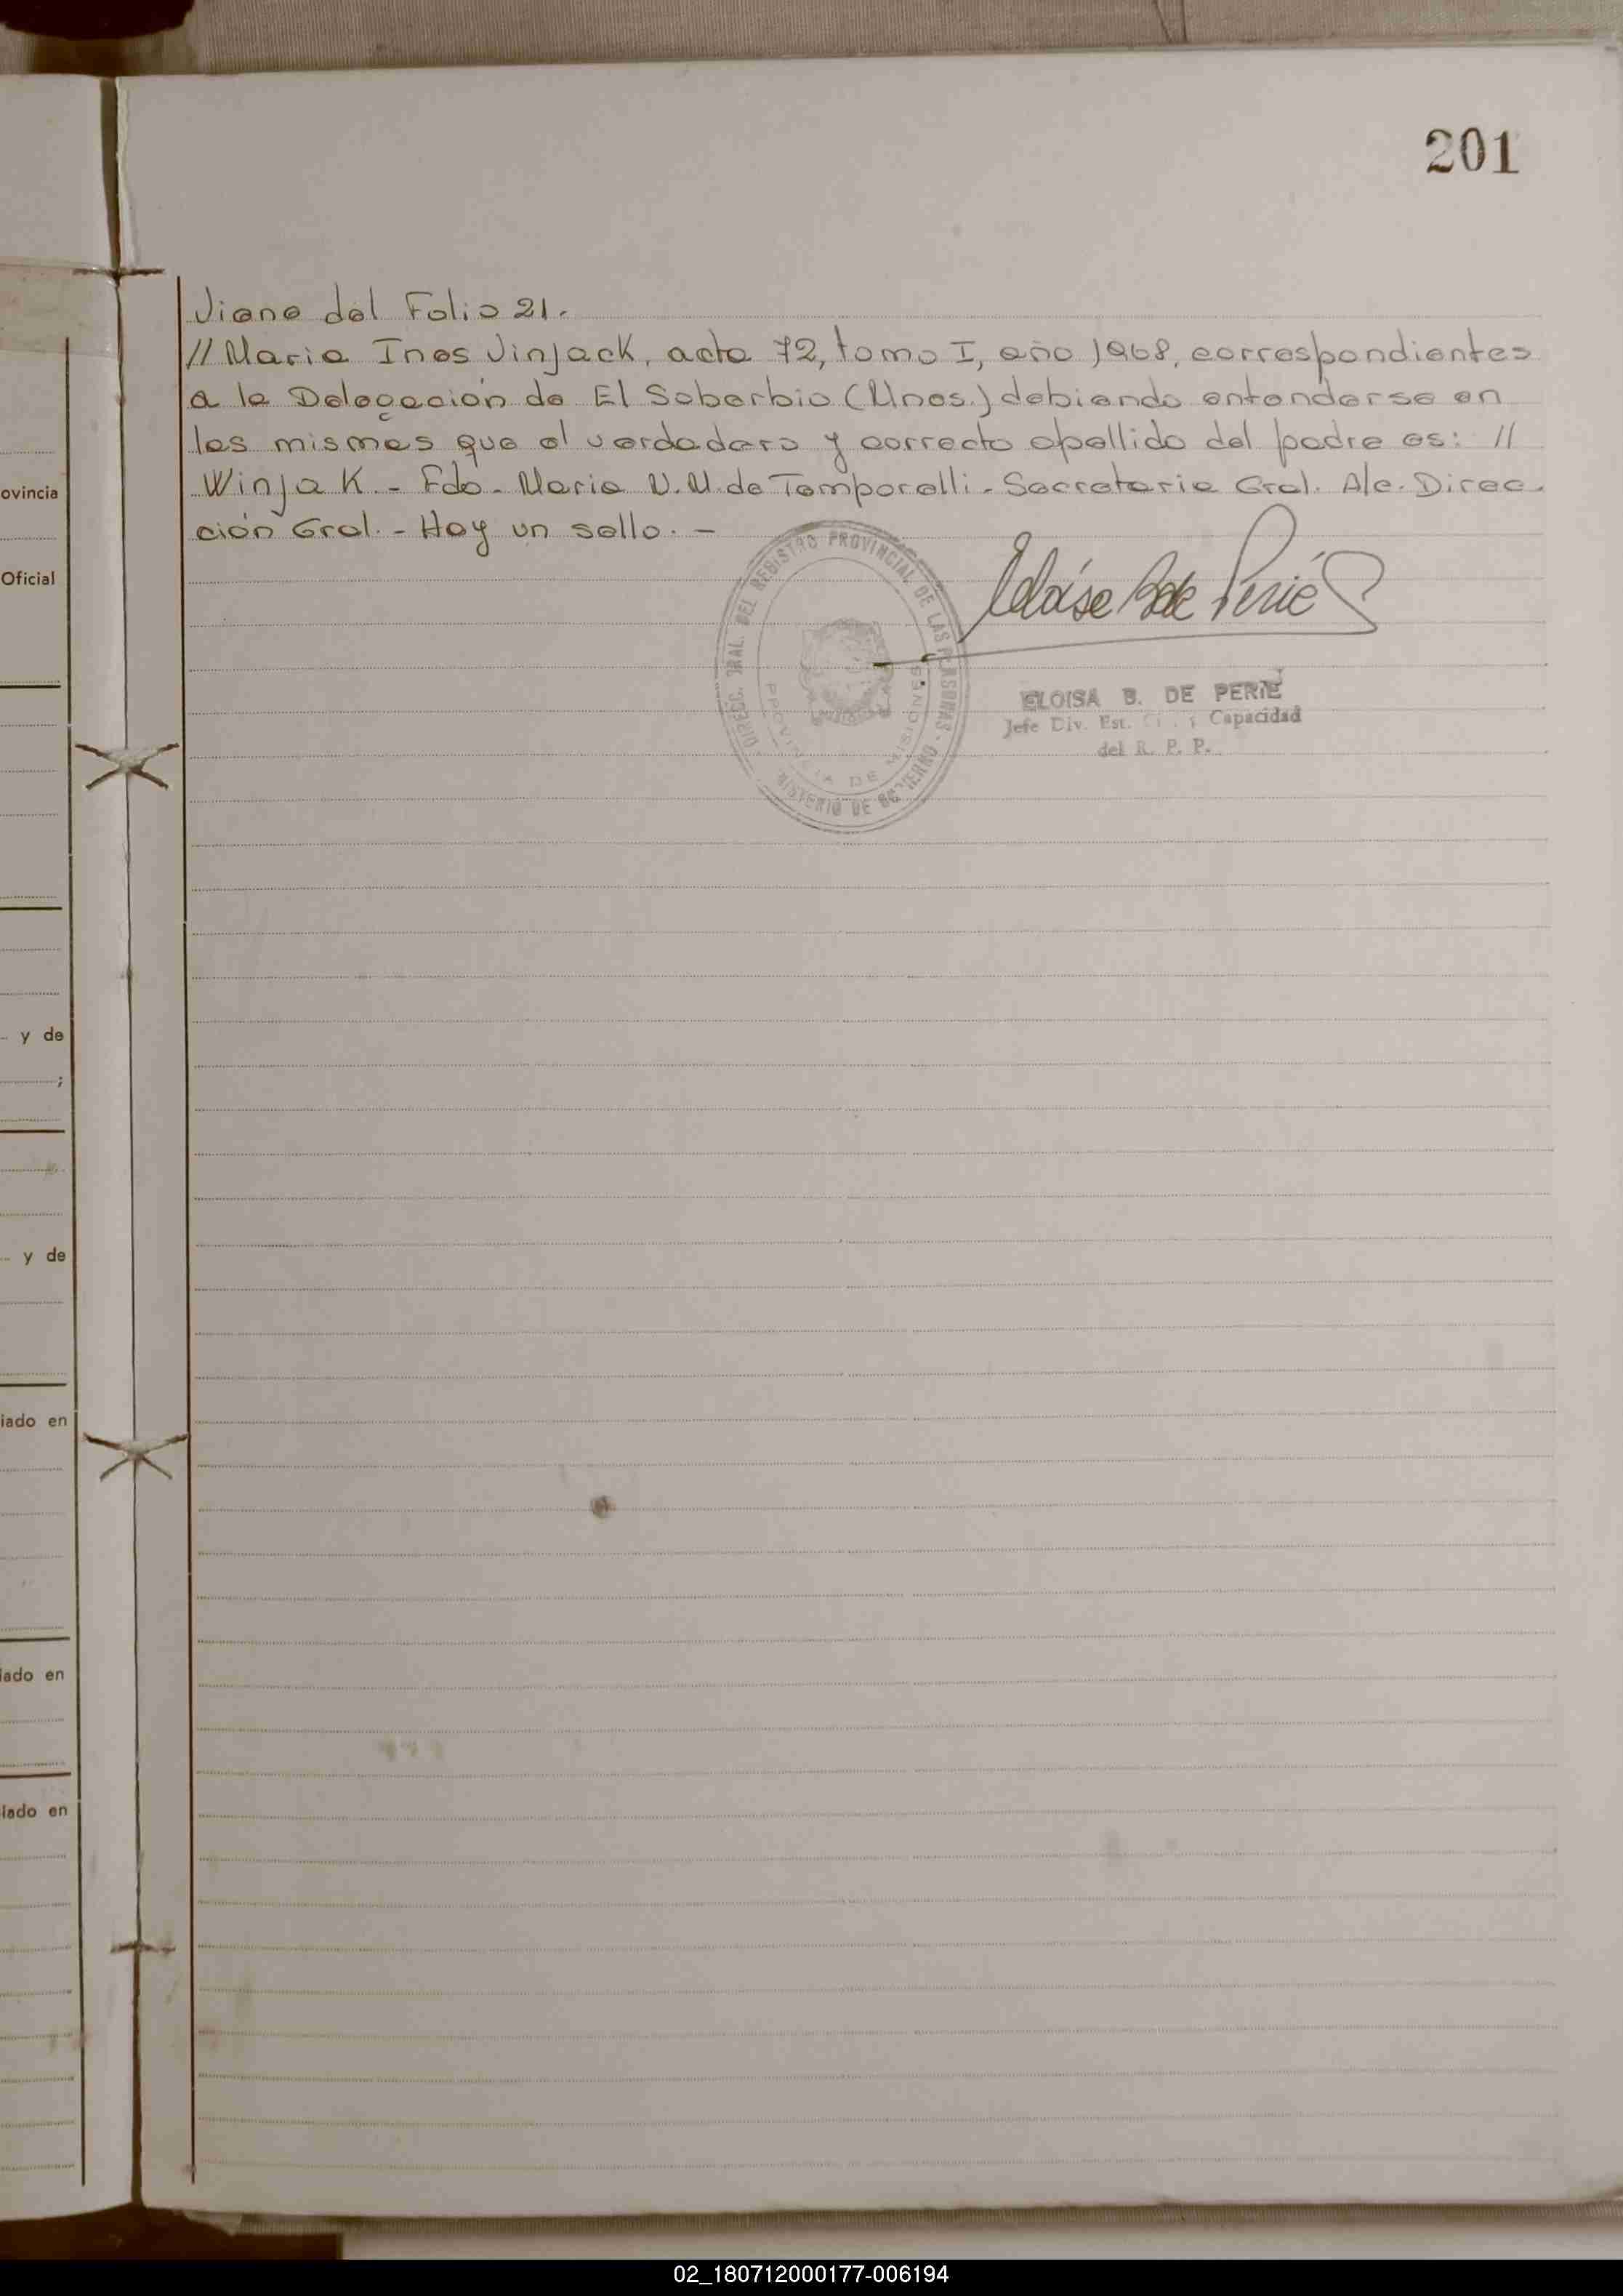 201
Viene del Folio 21.
// Maria Ines Vinjack, acta 72, tomo I, año 1968, correspondientes
a la Delegación de El Soberbio (Mnes.) debiendo entenderse en
las mismas que el verdadero y correcto apellido del padre es: //
Winjak. - Fdo. Maria V. M. de Temporelli - Secretaria Gral. A/c. Direc-
ción Gral. - Hay un sello. -
DIRECC. GRAL. DEL REGISTRO PROVINCIAL DE LAS PERSONAS - MINISTERIO DE GOBIERNO
PROVINCIA DE MISIONES
Eloisa B de Perié
ELOISA B. DE PERIE
Jefe Div. Est. Capacidad
del R. P. P.
ovincia
Oficial
y de
;
y de
iado en
iado en
iado en
02_180712000177-006194